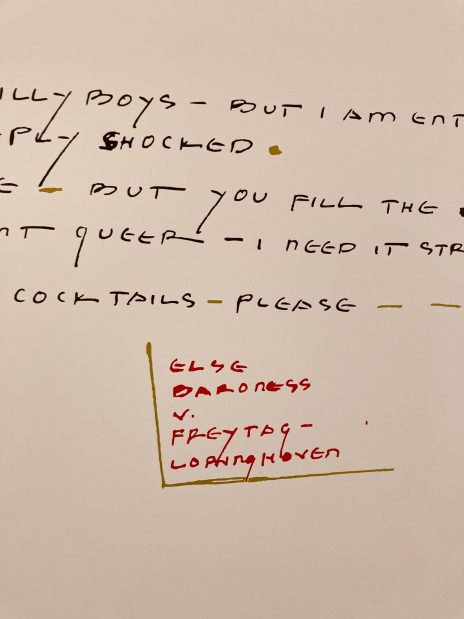 ILLY BOYS – BUT I AM ENT
EPLY SHOCKED .
E – BUT YOU FILL THE
NT QUEER – I NEED IT STR
COCKTAILS – PLEASE – –
ELSE
BARONESS
V.
FREYTAG –
LORINGHOVEN